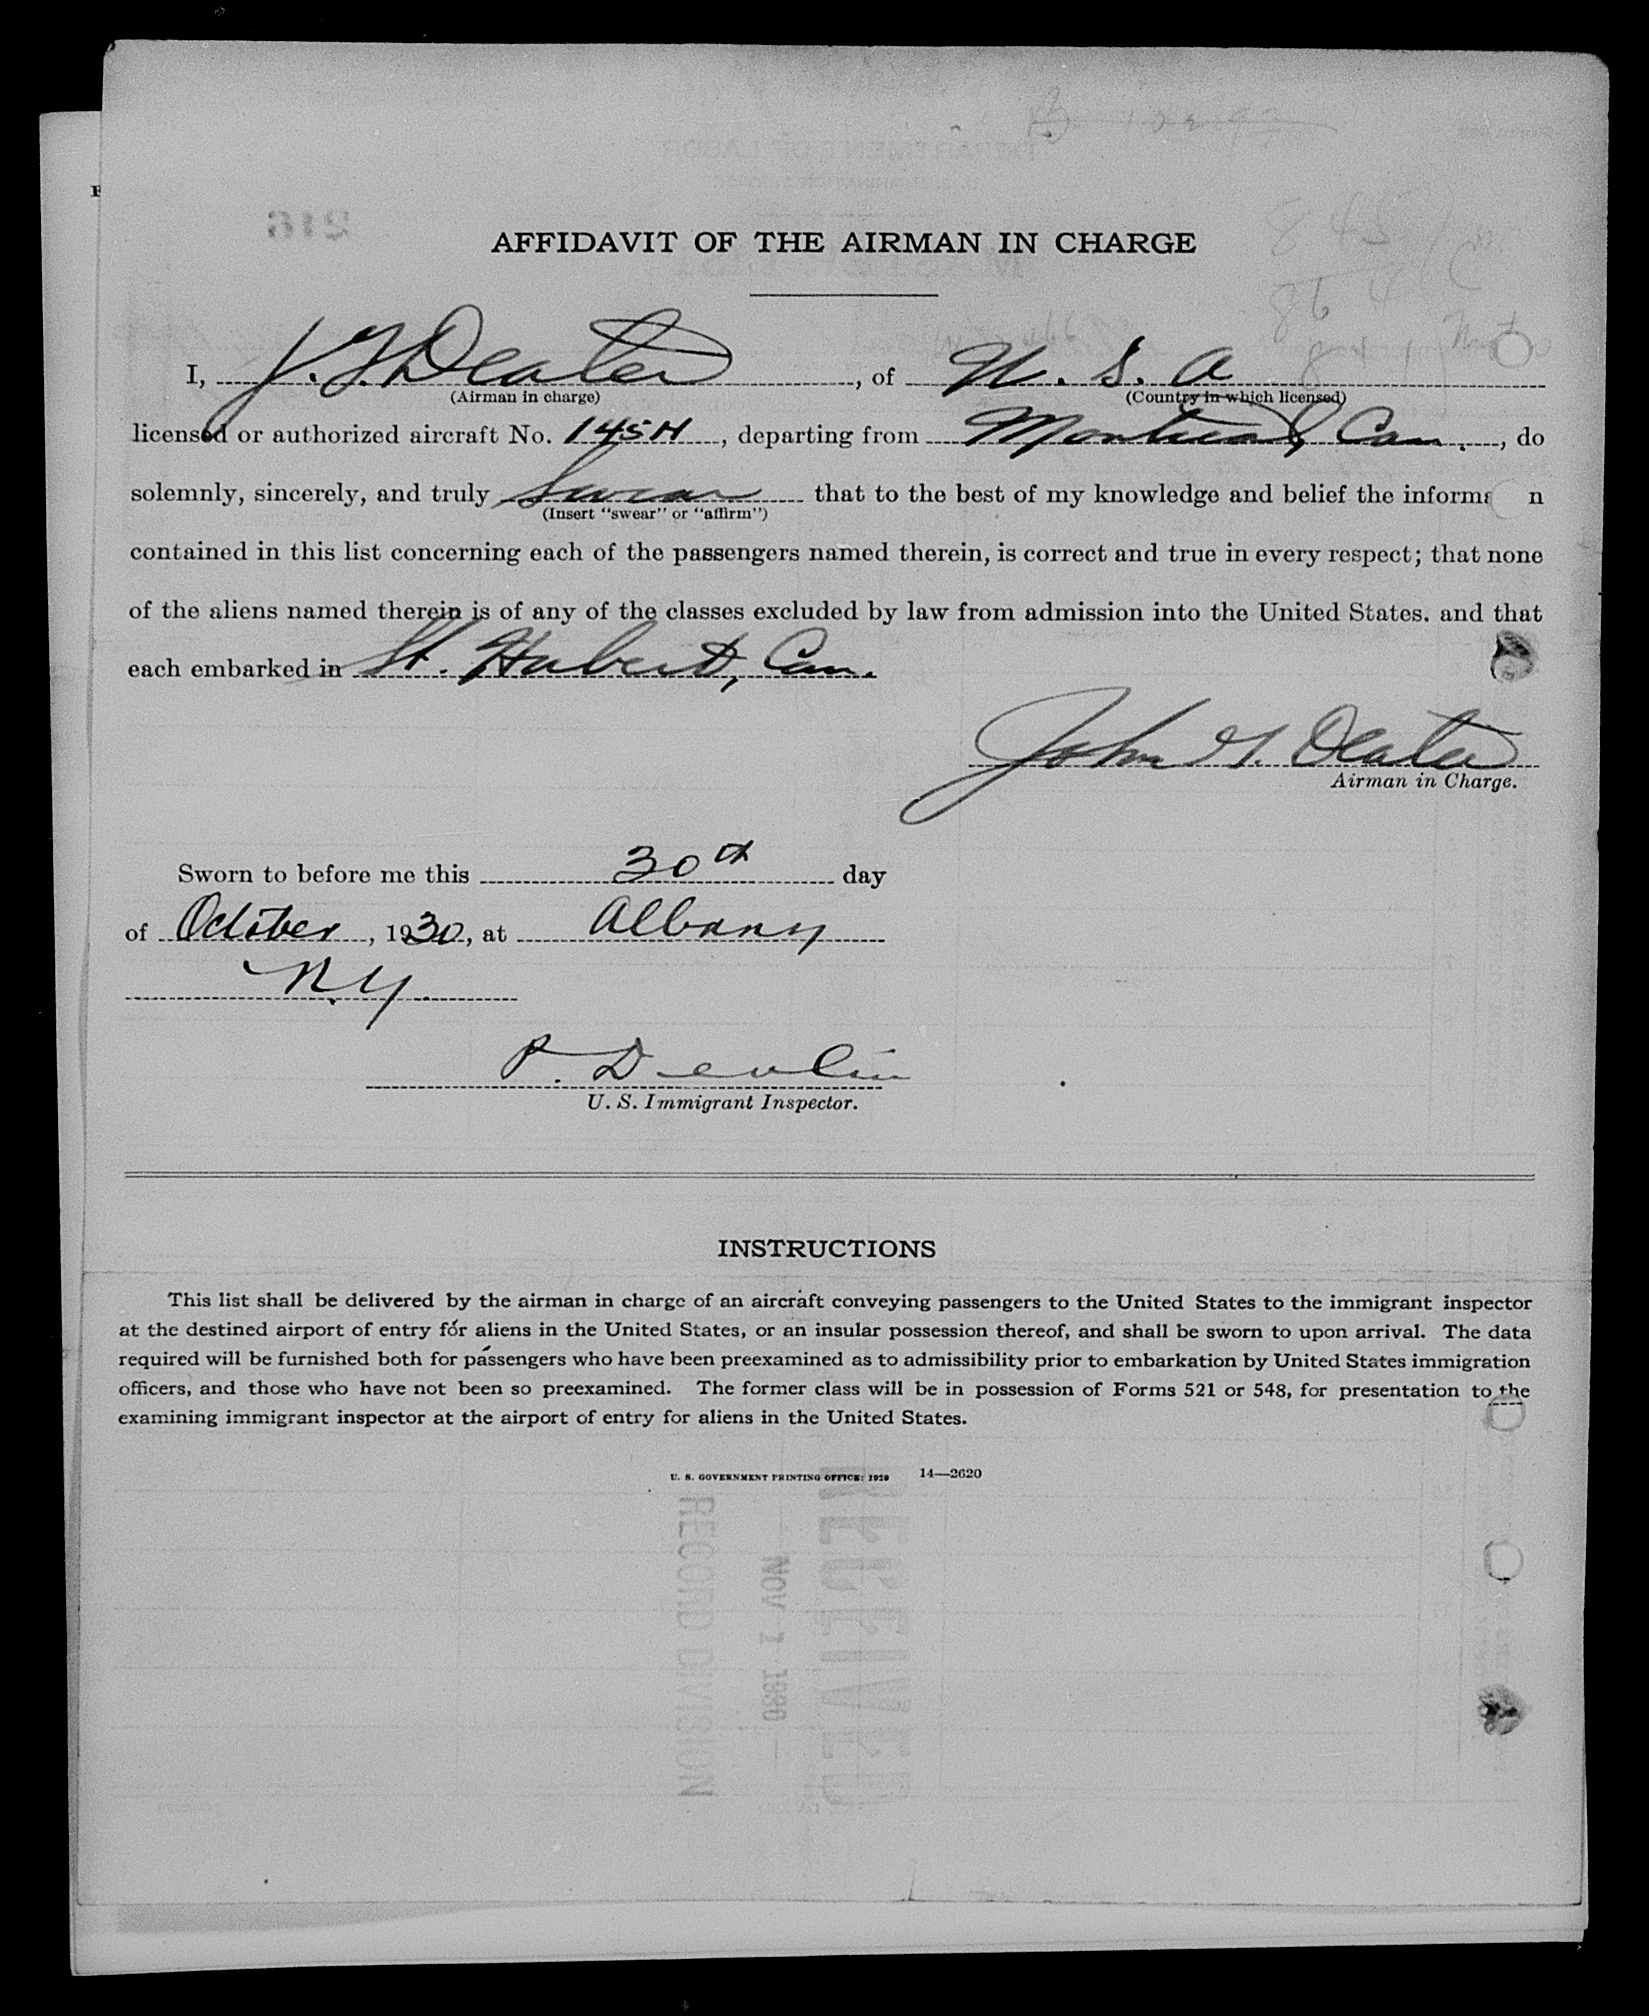 AFFIDAVIT OF THE AIRMAN IN CHARGE
I, J. G. Deater, of U. S. A
(Airman in charge) (Country in which licensed)
licensed or authorized aircraft No. 145H, departing from Montreal, Can., do
solemnly, sincerely, and truly swear that to the best of my knowledge and belief the informa n
(Insert "swear" or "affirm")
contained in this list concerning each of the passengers named therein, is correct and true in every respect; that none
of the aliens named therein is of any of the classes excluded by law from admission into the United States. and that
each embarked in St. Hubert, Can.
John G. Deater
Airman in Charge.
Sworn to before me this 30th day
of October, 1930, at Albany
N.Y.
P. Devlin
U. S. Immigrant Inspector.
INSTRUCTIONS
This list shall be delivered by the airman in charge of an aircraft conveying passengers to the United States to the immigrant inspector
at the destined airport of entry for aliens in the United States, or an insular possession thereof, and shall be sworn to upon arrival. The data
required will be furnished both for passengers who have been preexamined as to admissibility prior to embarkation by United States immigration
officers, and those who have not been so preexamined. The former class will be in possession of Forms 521 or 548, for presentation to the
examining immigrant inspector at the airport of entry for aliens in the United States.
U. S. GOVERNMENT PRINTING OFFICE: 1929 14—2620
RECEIVED
NOV 1 1930
RECORD DIVISION